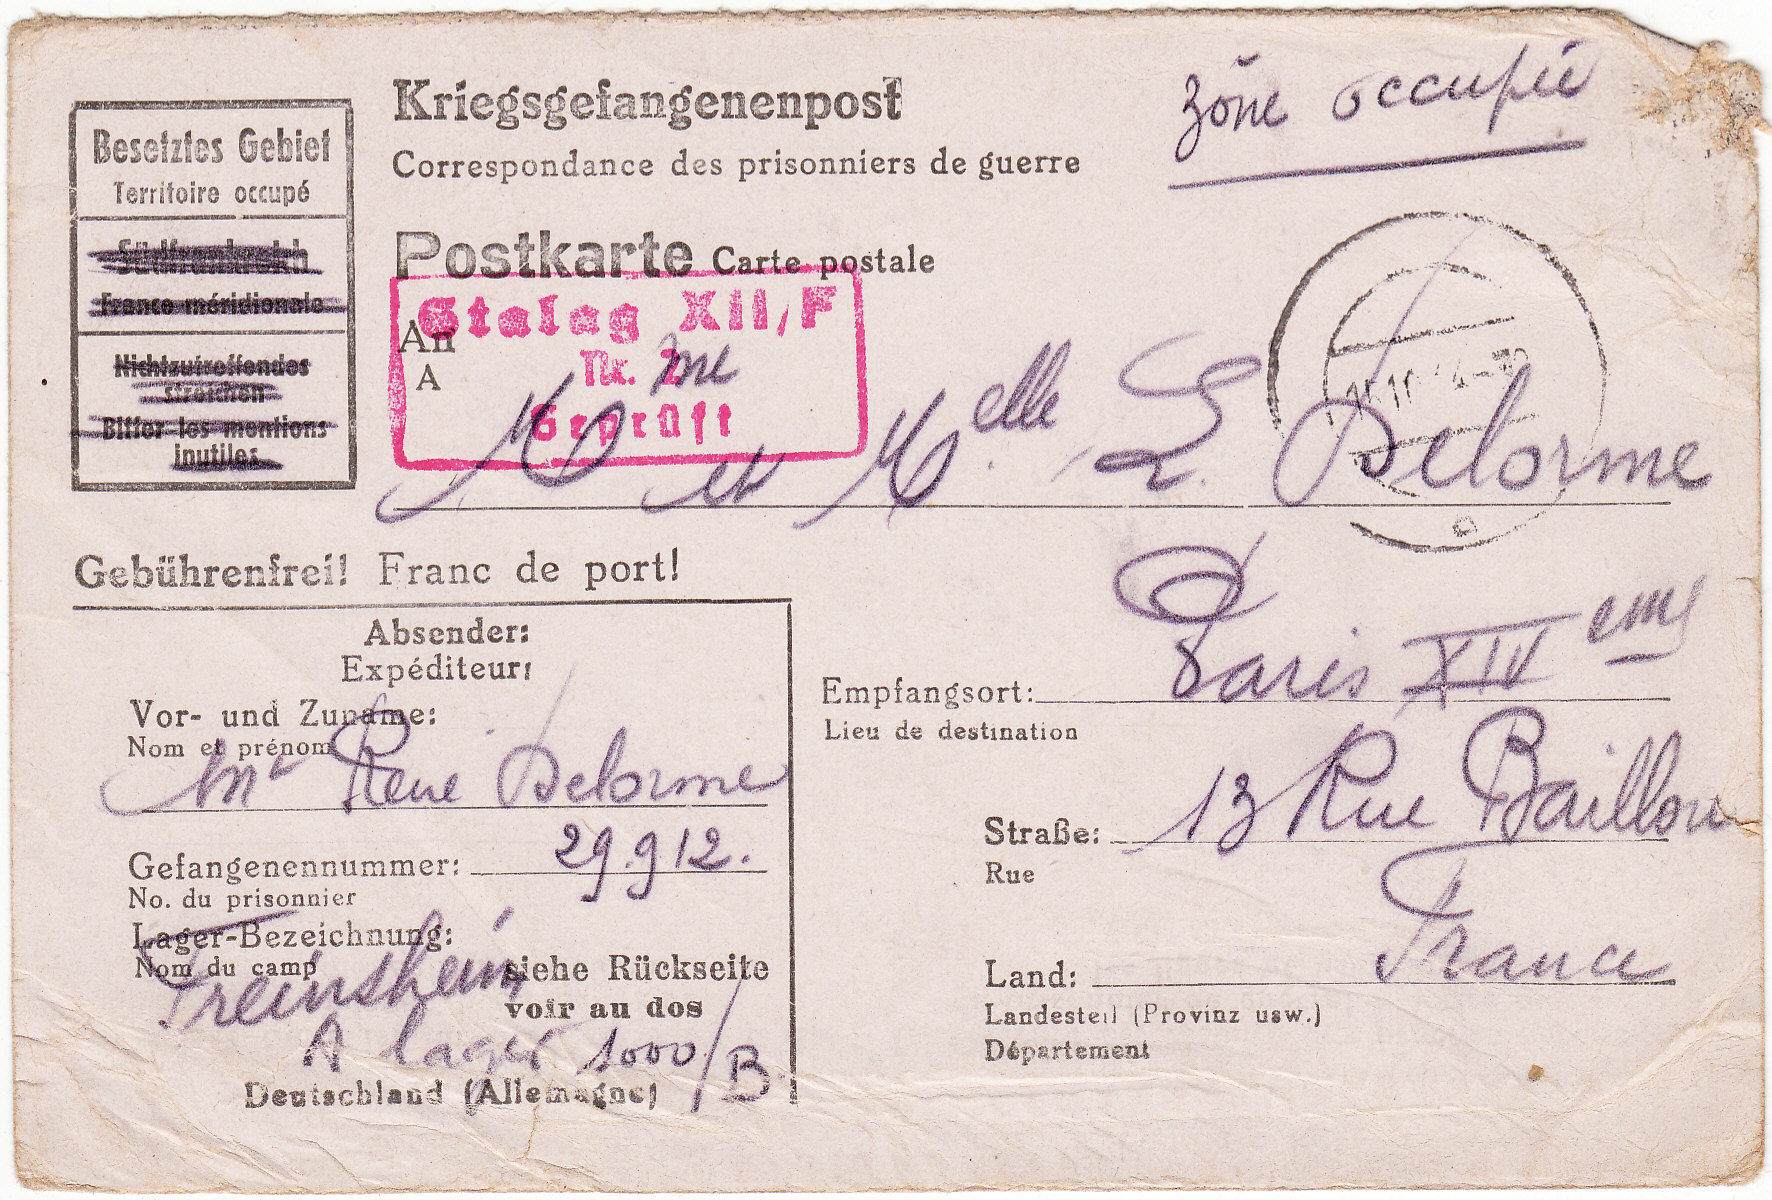 Kriegsgefangenenpost
Correspondance des prisonniers de guerre
zône occupée
Besetztes Gebiet
Territoire occupé
Südfrankreich
France méridionale
Nichtzutreffendes
streichen
Biffer les mentions
inutiles
Postkarte Carte postale
Stalag XII/F
Nr. 2
Geprüft
An
A
Mme et Melle L. Delorme
Gebührenfrei! Franc de port!
Absender:
Expéditeur:
Vor- und Zuname:
Nom et prénom
Mr René Delorme
Gefangenennummer: 29.912.
No. du prisonnier
Lager-Bezeichnung:
Nom du camp
siehe Rückseite
Freinsheim
voir au dos
A lager 1000/B
Deutschland (Allemagne)
Empfangsort: Paris XIV eme
Lieu de destination
Straße: 13 Rue Baillou
Rue
Land: France
Landesteil (Provinz usw.)
Département